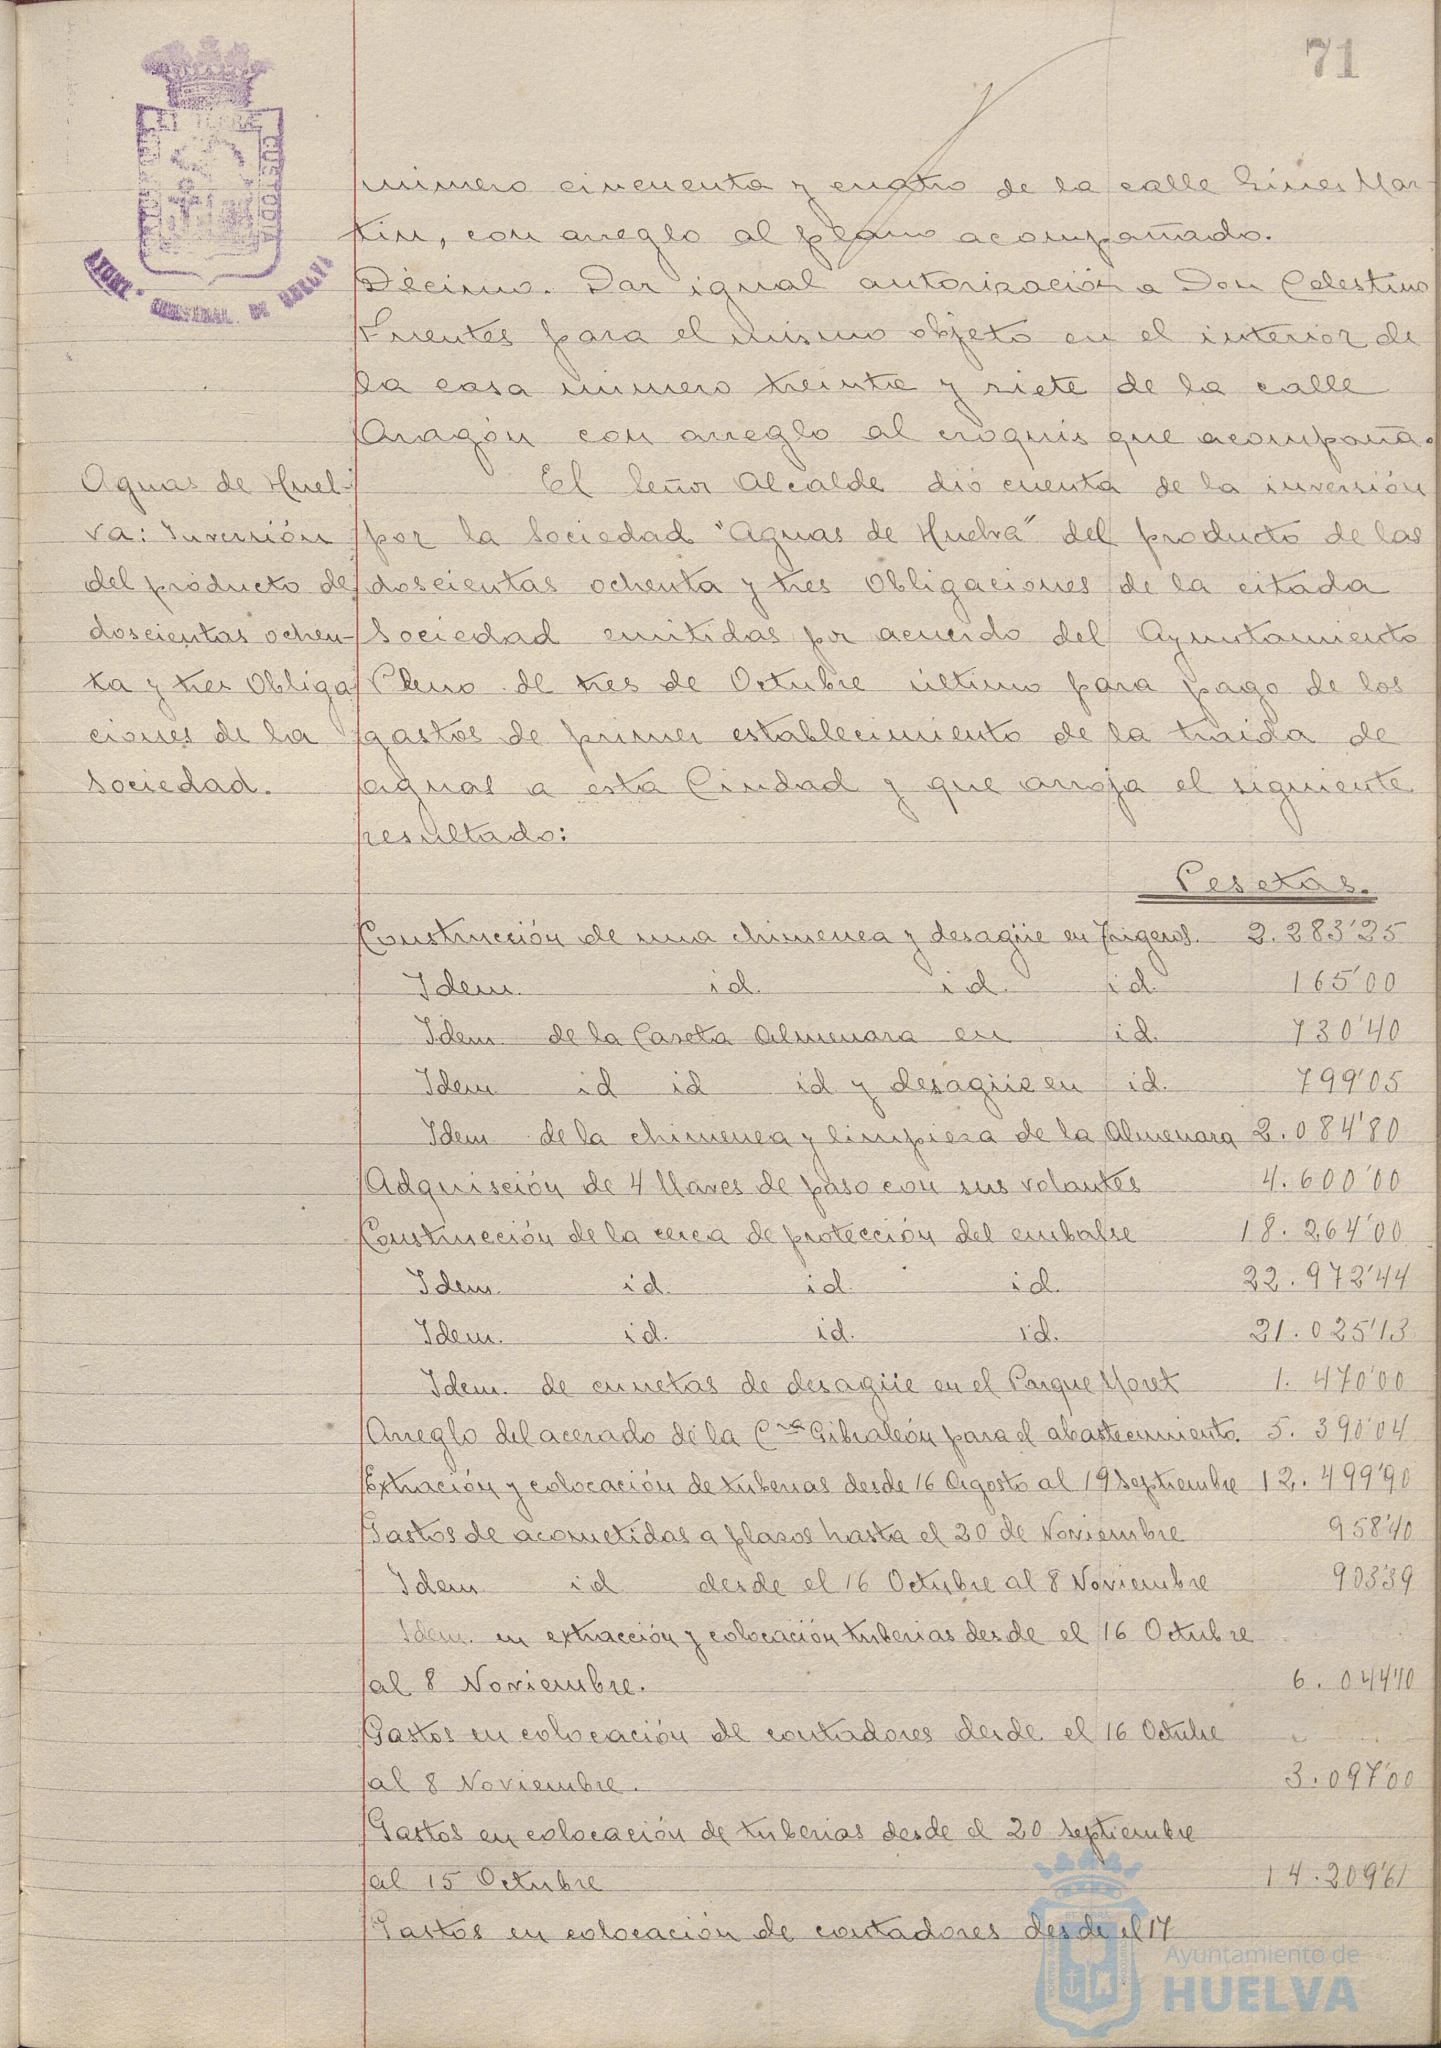 71
PORTUS MARIS ET TERRE CUSTODIA
AYUNT. CONSTNAL. DE HUELVA
número cincuenta y cuatro de la calle Ginés Mar-
tín, con arreglo al plano acompañado.
Décimo. Dar igual autorización a Don Celestino
Fuentes para el mismo objeto en el interior de
la casa número treinta y siete de la calle
Aragón con arreglo al croquis que acompaña.
Aguas de Huel-
va: Inversión
del producto de
doscientas ochen-
ta y tres Obliga
ciones de la
Sociedad.
El Señor Alcalde dió cuenta de la inversión
por la Sociedad "Aguas de Huelva" del producto de las
doscientas ochenta y tres Obligaciones de la citada
Sociedad emitidas por acuerdo del Ayuntamiento
Pleno de tres de Octubre último para pago de los
gastos de primer establecimiento de la traida de
aguas a esta Ciudad y que arroja el siguiente
resultado:
Pesetas.
Construcción de una chimenea y desagüe en Trigeros. 2.283'25
Idem. id. id. id. 165'00
Idem de la Caseta Almenara en id. 730'40
Idem id id id y desagüe en id. 799'05
Idem de la chimenea y limpieza de la Almenara 2.084'80
Adquisción de 4 llaves de paso con sus volantes 4.600'00
Construcción de la cerca de protección del embalse 18.264'00
Idem. id. id. id. 22.972'44
Idem. id. id. id. 21.025'13
Idem. de cunetas de desagüe en el Parque Moret 1.470'00
Arreglo del acerado de la Cra Gibraleón para el abastecimiento. 5.390'04
Extración y colocación de tuberias desde 16 Agosto al 19 Septiembre 12.499'90
Gastos de acometidas a plazos hasta el 20 de Noviembre 958'40
Idem id desde el 16 Octubre al 8 Noviembre 903'39
Idem. en extracción y colocación tuberias desde el 16 Octubre
al 8 Noviembre. 6.044'10
Gastos en colocación de contadores desde el 16 Octubre
al 8 Noviembre. 3.097'00
Gastos en colocación de tuberias desde el 20 Septiembre
al 15 Octubre 14.209'61
Gastos en colocación de contadores desde el 17
Ayuntamiento de
HUELVA